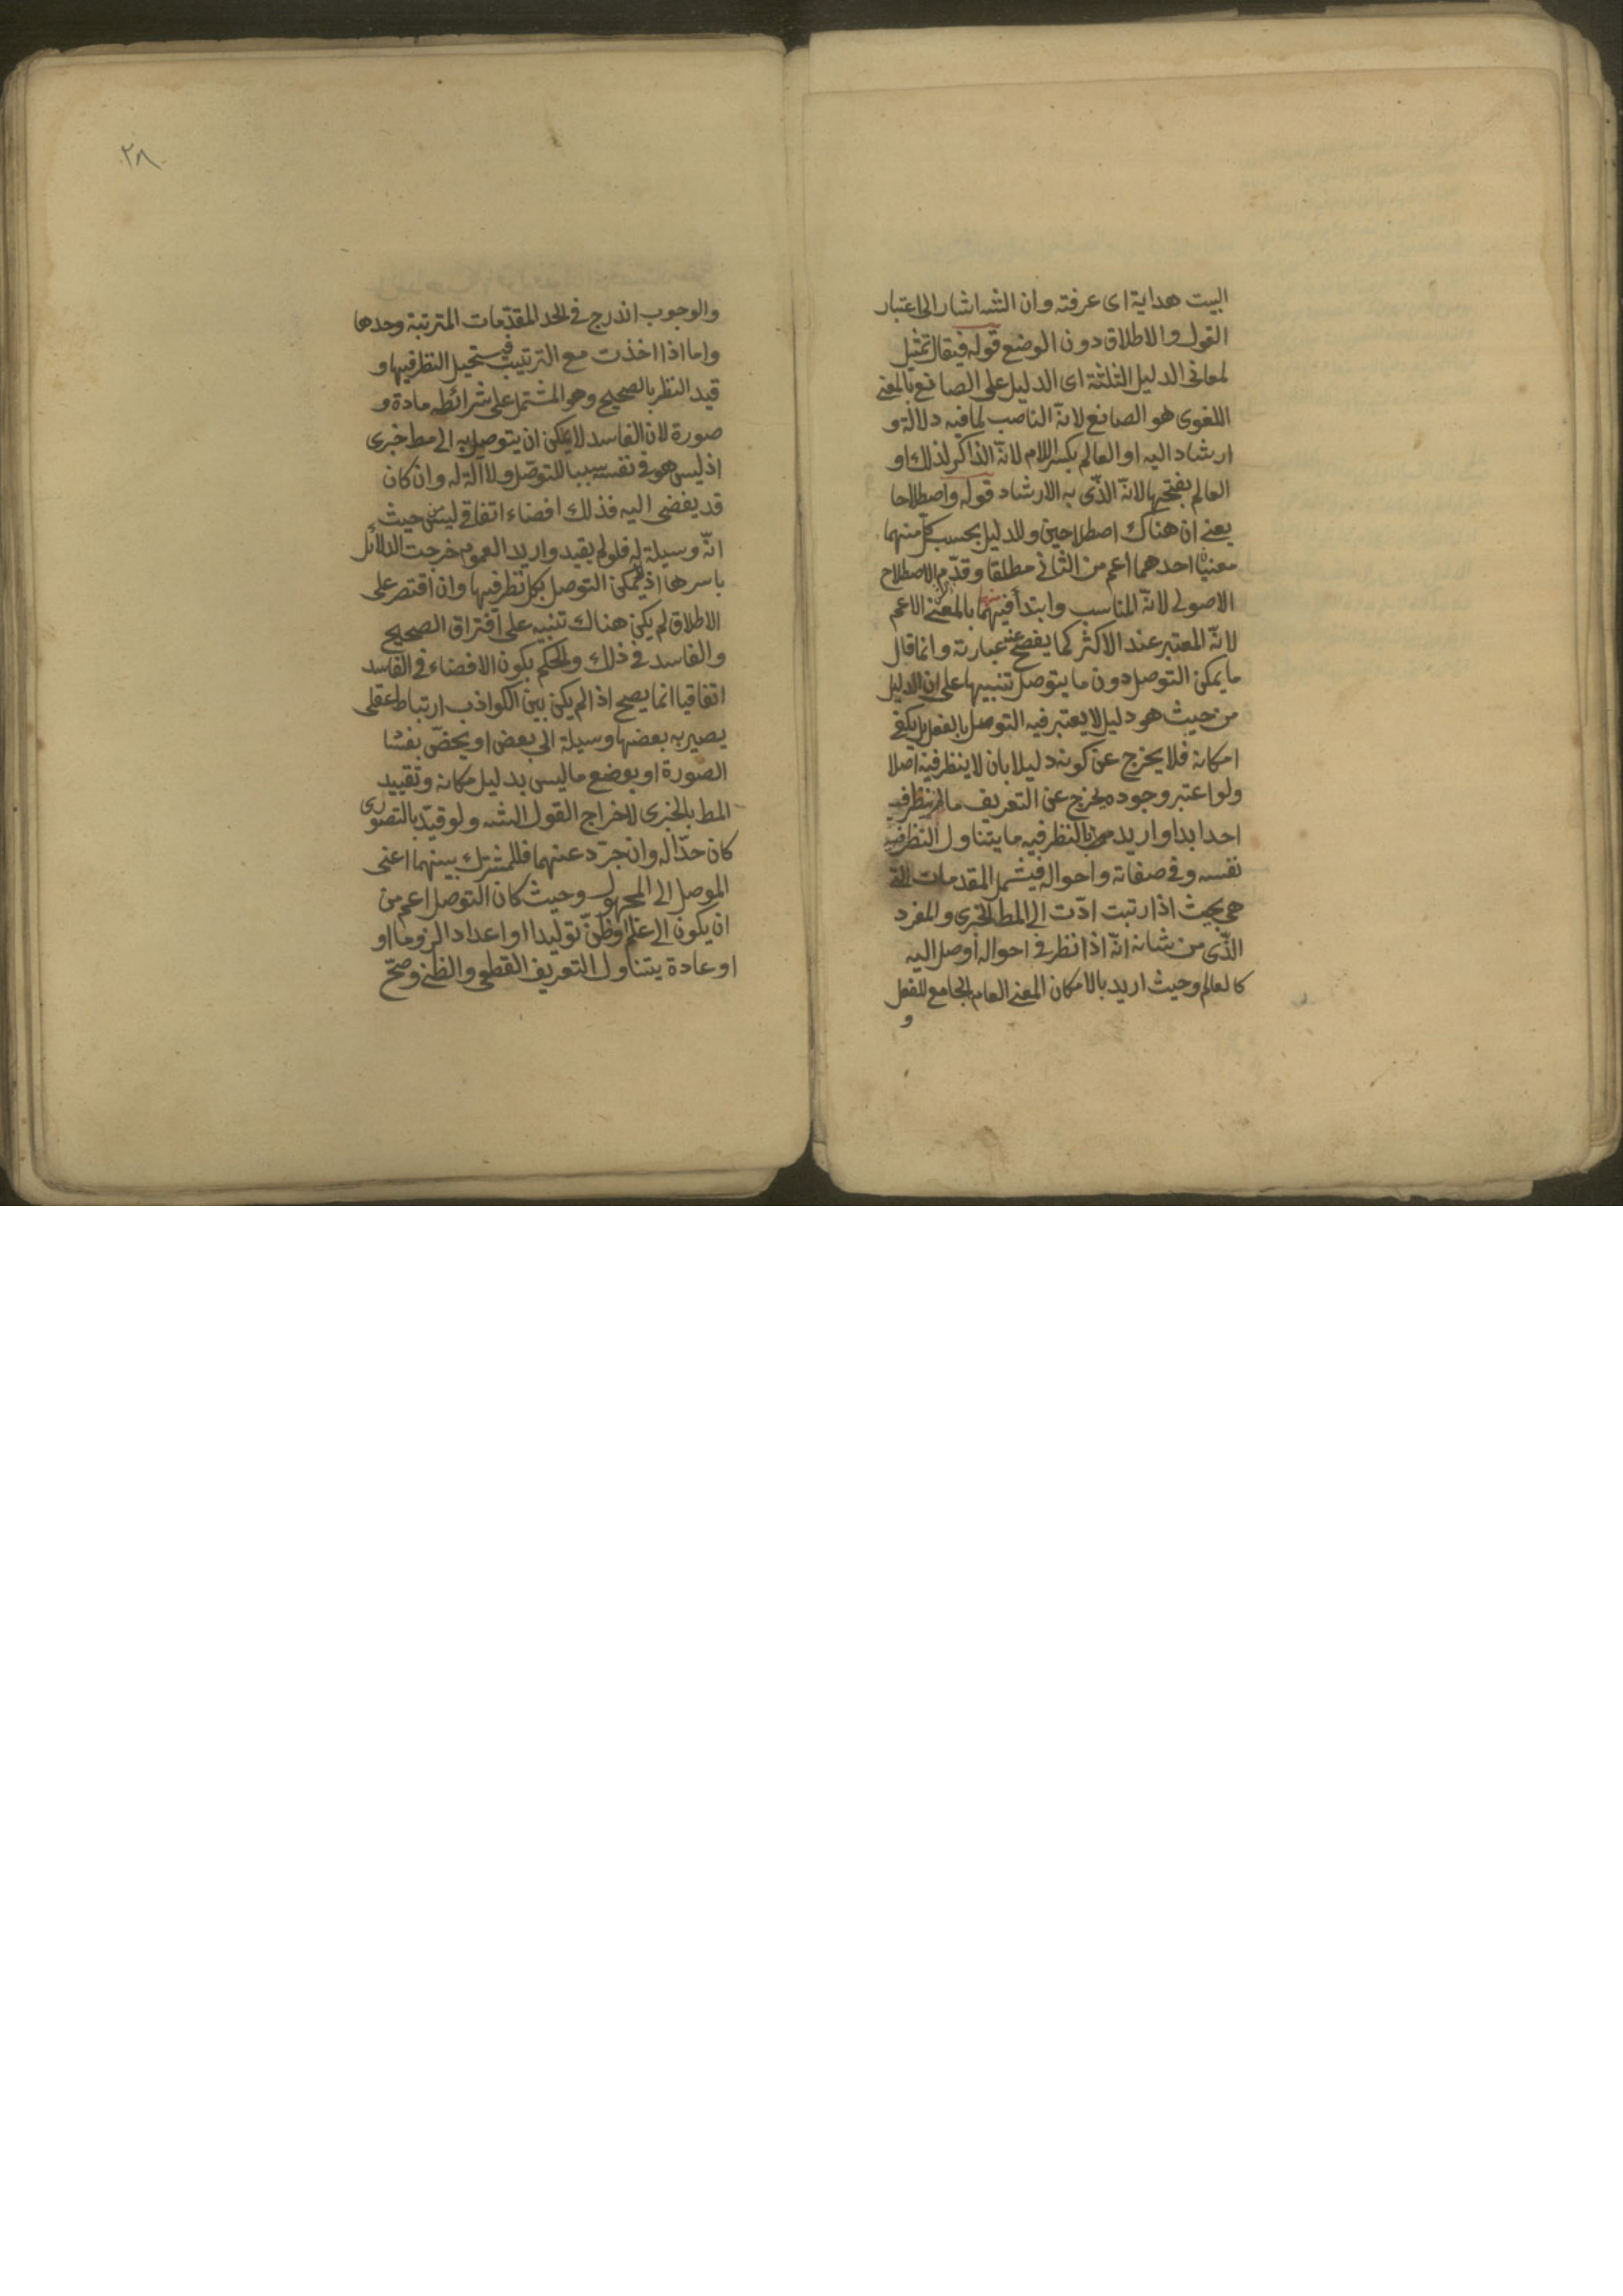 البيت هداية اى عرفته وان الشه اشار الى اعتبار
القول والاطلاق دون الوضع قوله فيقال تمثيل
لمعانى الدليل الثلثة اى الدليل على الصانع بالمعنى
اللغوى هو الصانع لانّه الناصب لما فيه دلالة و
ارشاد اليه او العالم بكسر اللام لانّه الذاكر لذلك او
العالم بفتحها لانّه الذّى به الارشاد قوله واصطلاحا
يعنى ان هناك اصطلاحين وللدليل بحسب كلّ منهما
معنيان احدهما اعم من الثانى مطلقا وقدّم الاصطلاح
الاصولى لانّه المناسب وابتدأ فيهما بالمعنى الاعم
لانّه المعتبر عند الاكثر كما يفصح عنه عبارته وانما قال
ما يمكن التوصل دون ما يتوصل تنبيها على ان الدليل
من حيث هو دليل لا يعتبر فيه التوصل بالفعل بل يكفى
امكانه فلا يخرج عن كونه دليلا بان لا ينظر فيه اصلا
ولو اعتبر وجوده يخرج عن التعريف ما لم ينظر فيه
احد ابدا واريد بالنظر فيه ما يتناول النظر فيه
نفسه وفى صفاته واحواله فيشمل المقدمات التى
هى بحيث اذا رتبت ادّت الى المط الخبرى والمفرد
الذّى من شانه انّه اذا نظر فى احواله أوصل اليه
كالعالم وحيث اريد بالامكان المعنى العام الجامع للفعل
و
٢٨
والوجوب اندرج فى الحد المقدّمات المترتبة وحدها
واما اذا اخذت مع الترتيب فيستحيل النظر فيها و
قيد النظر بالصحيح وهو المشتمل على شرائطه مادة و
صورة لان الفاسد لا يمكن ان يتوصل به الى مط خبرى
اذ ليس هو فى نفسه سببا للتوصّل ولا آلة له وان كان
قد يفضى اليه فذلك افضاء اتفاقى ليس من حيث
انّه وسيلة له فلو لم يقيد واريد العموم خرجت الدلائل
باسرها اذ لا يمكن التوصل بكل نظر فيها وان اقتصر على
الاطلاق لم يكن هناك تنبيه على افتراق الصحيح
والفاسد فى ذلك والحكم بكون الافضاء فى الفاسد
اتفاقيا انما يصح اذا لم يكن بين الكواذب ارتباط عقلى
يصير به بعضها وسيلة الى بعض او يخصّ بفسا
الصورة او بوضع ما ليس بدليل مكانه وتقييد
المط بالخبرى لاخراج القول الشه ولو قيّد بالتصورى
كان حدّا له وان جرّد عنهما فللمشترك بينهما اعنى
الموصل الى المجهول وحيث كان التوصل اعم من
ان يكون الى علم او ظنّ توليدا او اعدادا لزوما او
او عادة يتناول التعريف القطعى والظنى وصحّ